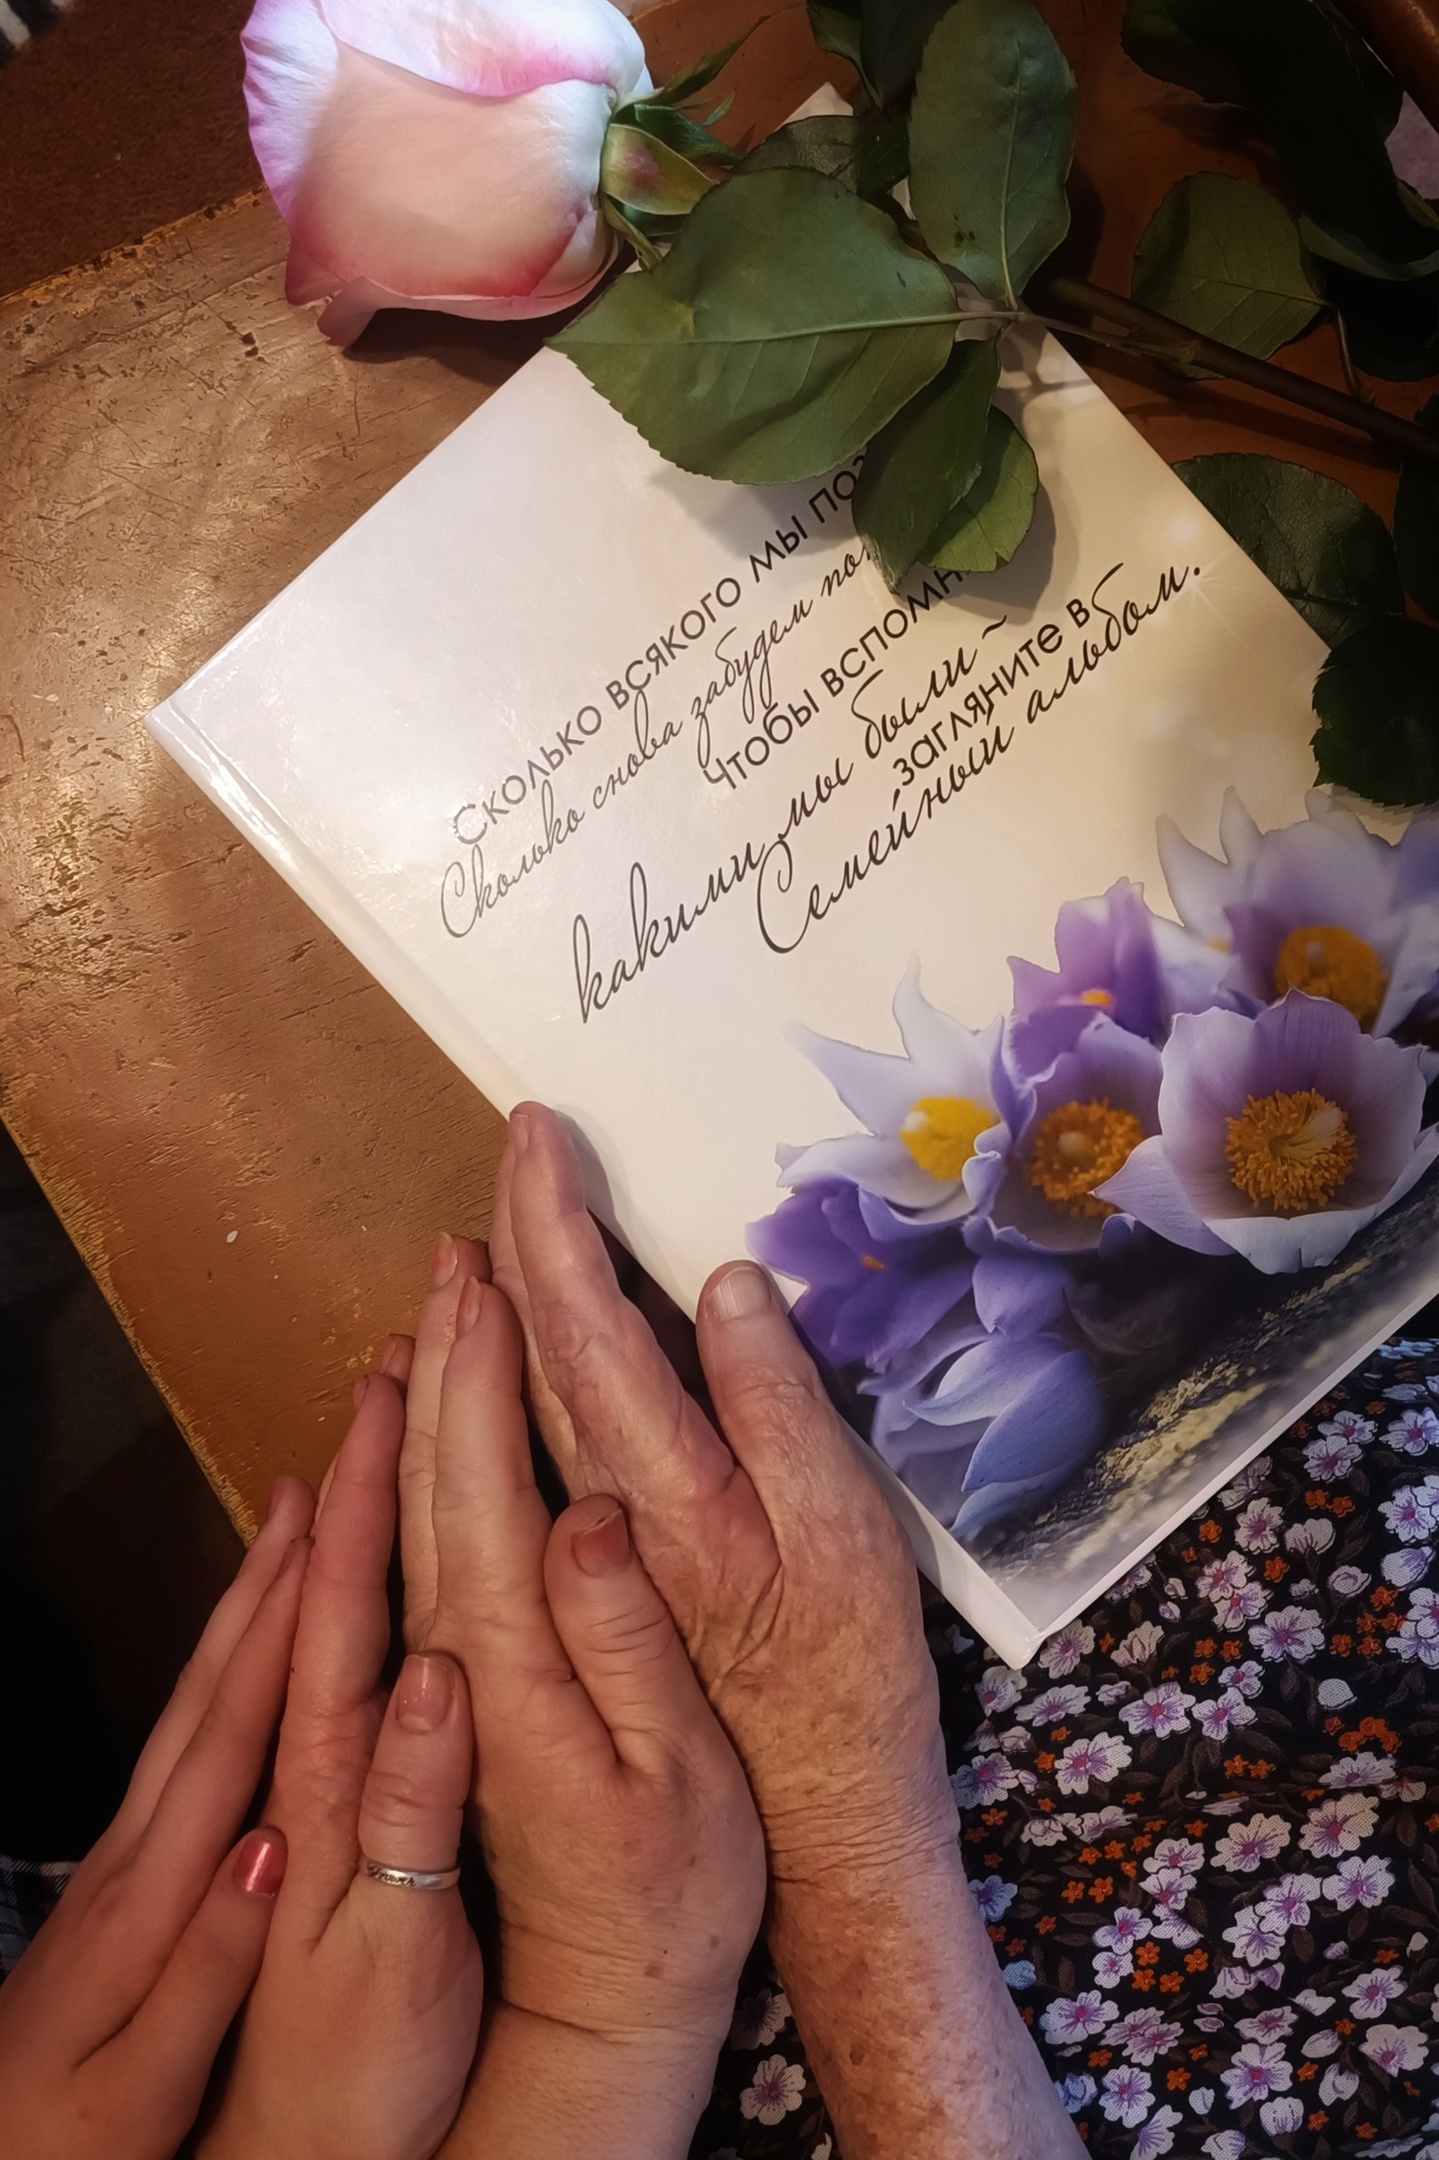 Сколько всякого мы
Сколько снова забудем
Чтобы
какими мы были ~
загляните в
Семейный альбом.